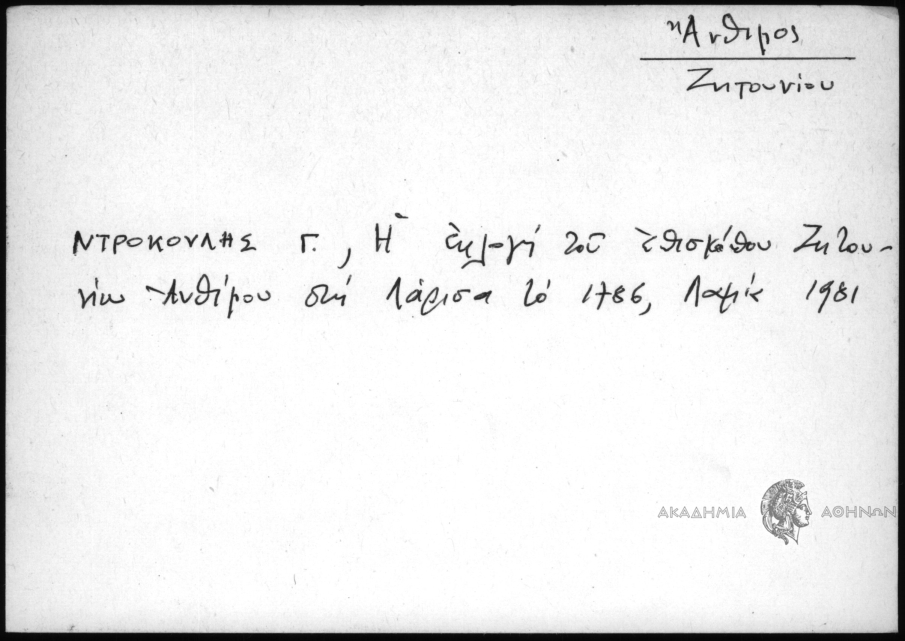 Ἄνθιμος
Ζητουνίου
ΝΤΡΟΚΟΥΛΗΣ Γ., Ἡ ἐκλογή τοῦ ἐπισκόπου Ζητου-
νίου Ἀνθίμου στή Λάρισα τό 1786, Λαμία 1981
ΑΚΑΔΗΜΙΑ ΑΘΗΝΩΝ